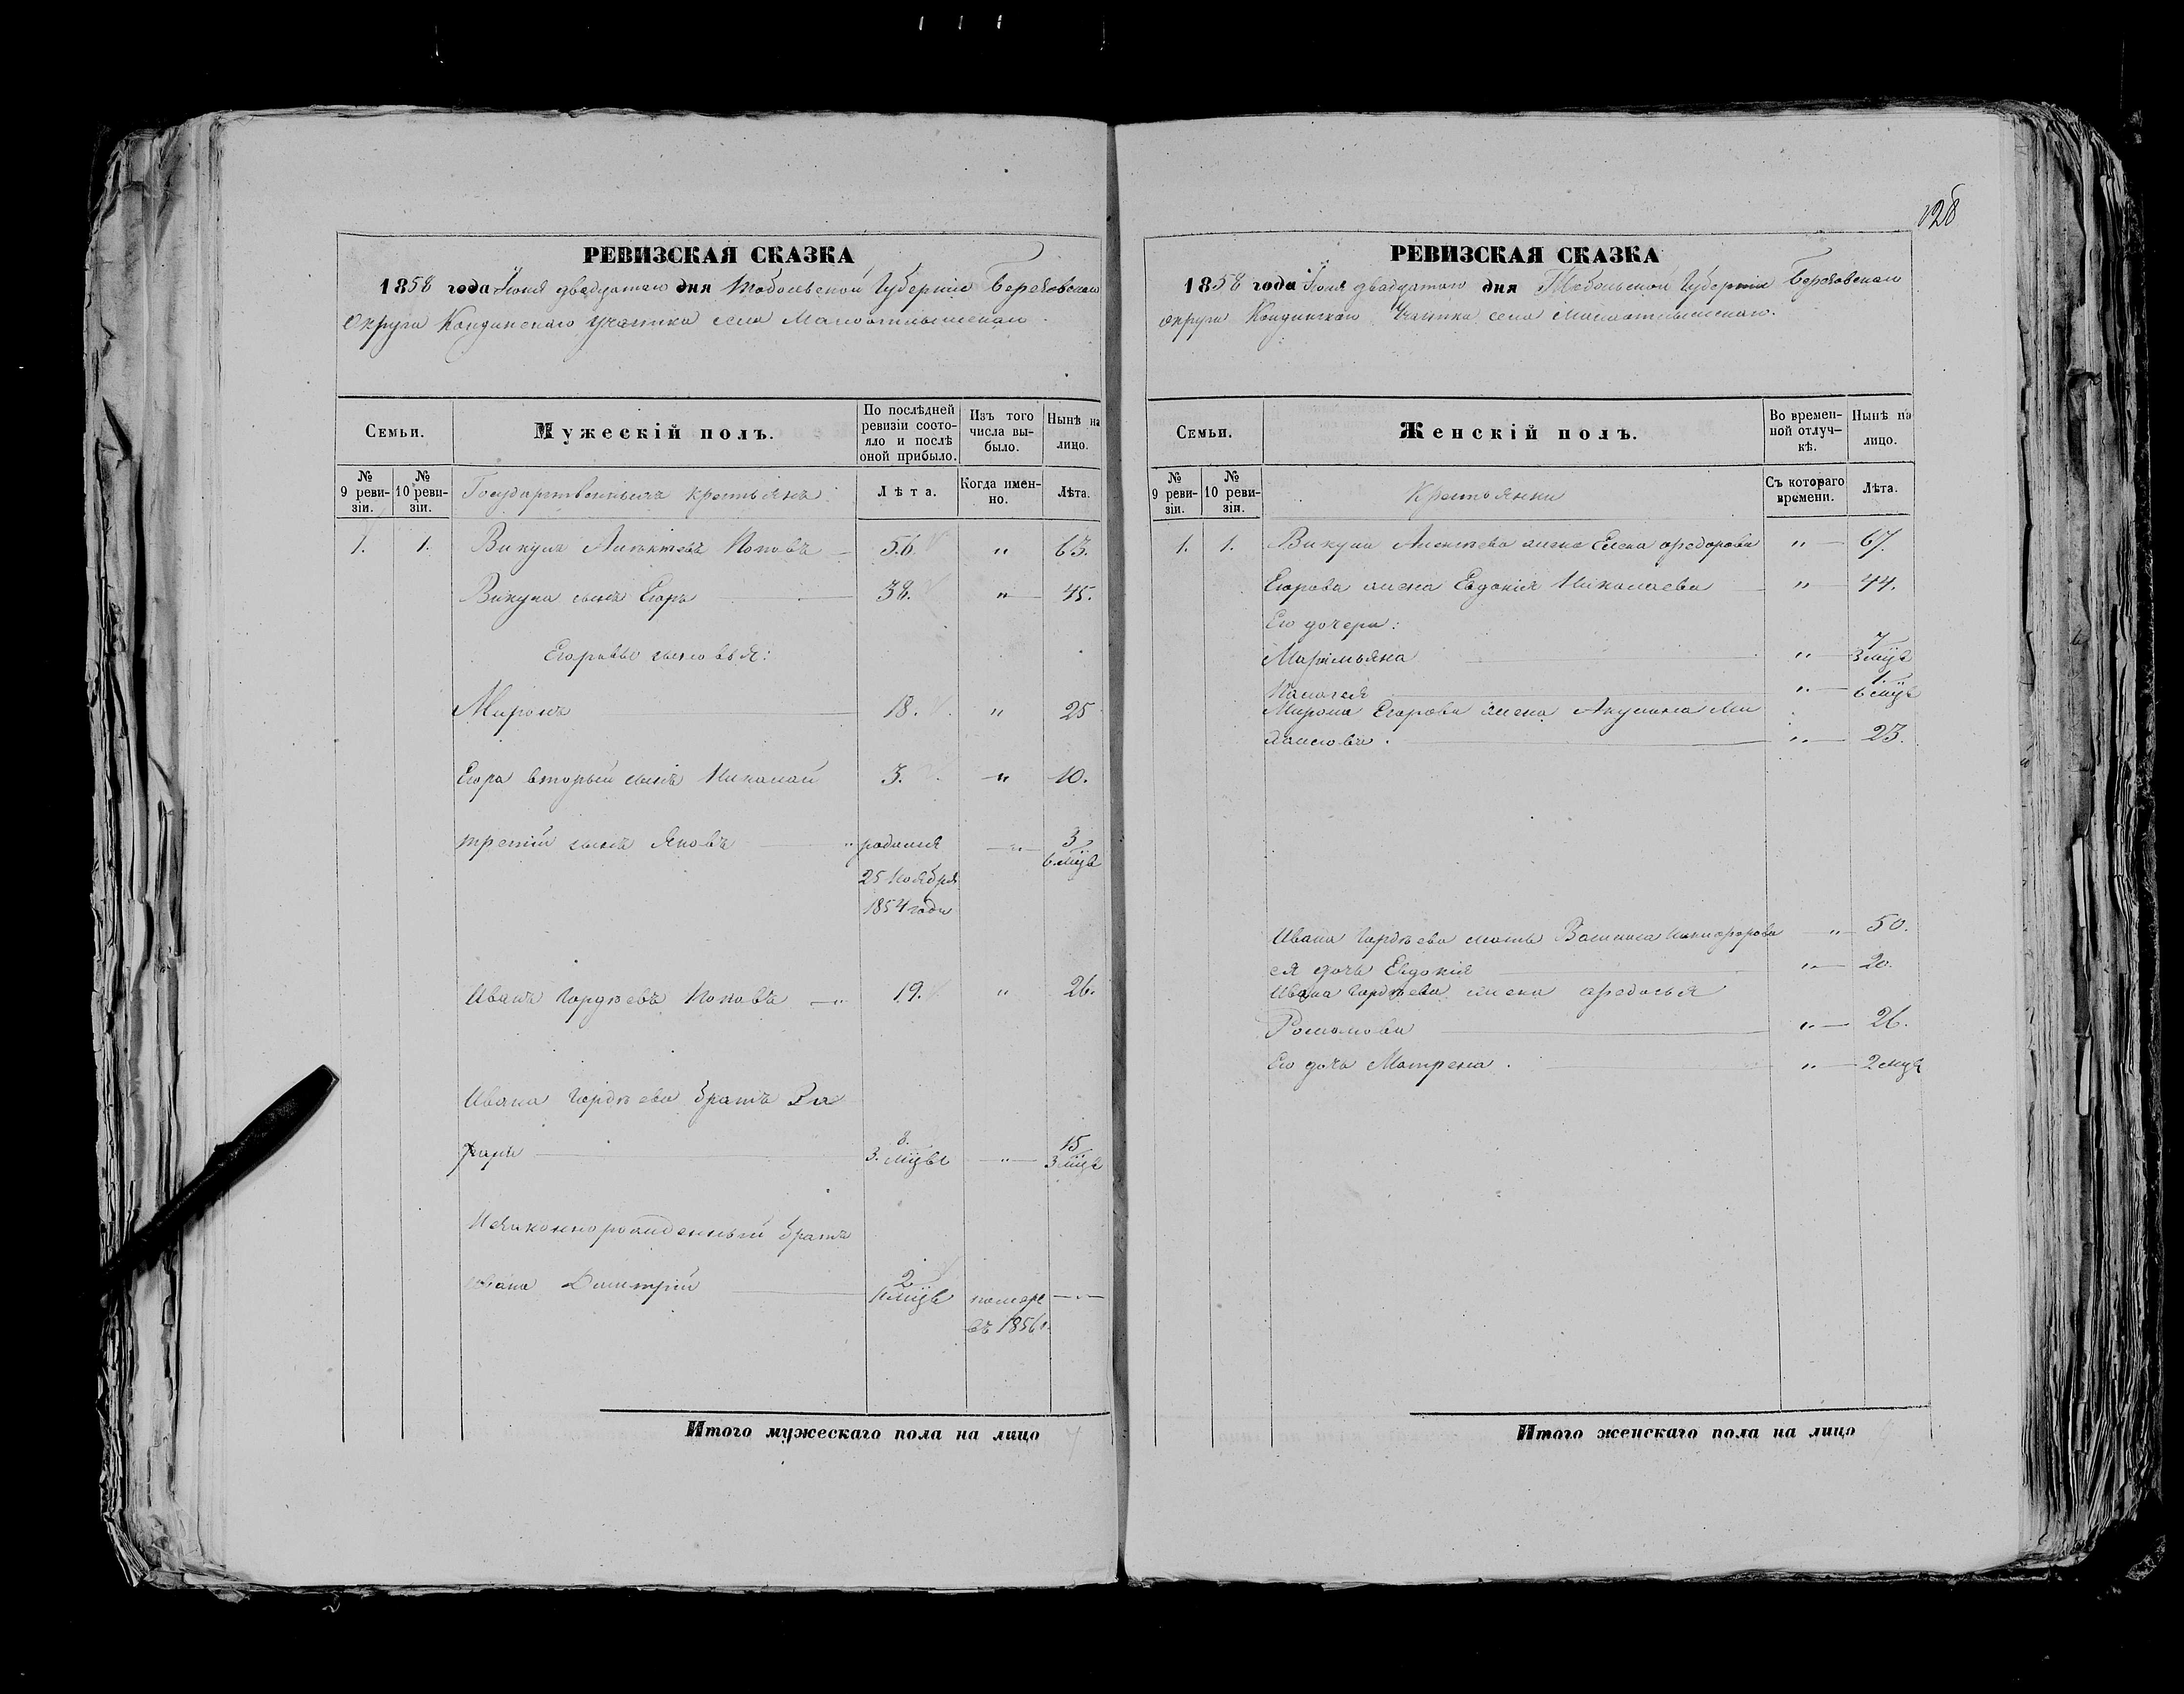 128
РЕВИЗСКАЯ СКАЗКА
1858 года Іюня двадцатаго дня Тобольской Губерніи Березовскаго
Округа Кондинскаго участка села Малоатлымскаго.
Семьи.
Мужескій полъ.
По послѣдней ревизіи состояло и послѣ оной прибыло.
Изъ того числа выбыло.
Нынѣ на лицо.
№ 9 ревизіи.
№ 10 ревизіи.
Государственныхъ крестьянъ
Лѣта.
Когда именно.
Лѣта.
1. 1. Викула Поповъ 56 " 63.
Викула сынъ Егоръ 38. " 45.
Егоровы сыновья:
Миронъ 18. " 25
Егора вторый сынъ Николай 3. " 10.
третій сынъ Яковъ " родился " 3
6 мцв
25 Ноября
1854 года
Иванъ Гордѣевъ Поповъ " 19. " 26.
Ивана Гордѣева братъ За
харъ 8. 3. мцвъ " 15 3 мцв
Незаконнорожденный братъ
Ивана Димитрій 2 мцв померъ
въ 1856 г.
Итого мужескаго пола на лицо 7
РЕВИЗСКАЯ СКАЗКА
1858 года Іюня двадцатаго дня Тобольской Губерніи Березовскаго
округа Кондинскаго Участка села Малоатлымскаго.
Семьи.
Женскій полъ.
Во временной отлучкѣ.
Нынѣ на лицо.
№ 9 ревизіи.
№ 10 ревизіи.
Крестьянки
Съ котораго времени.
Лѣта.
1. 1. Викула жена Елена Федорова " 67.
Егорова жена Евдокія Николаева " 44.
Его дочери:
Маримьяна " 7 3 мцв
Палагея " 1 6 мцв
Мирона Егорова жена Акулина Ми
" 23.
Ивана Гордѣева мать Никифорова " 50.
ея дочь Евдокія " 20.
Ивана Гордѣева жена Федосья
Романова " 26.
Его дочь Матрена. " 2 мцв
Итого женскаго пола на лицо 9